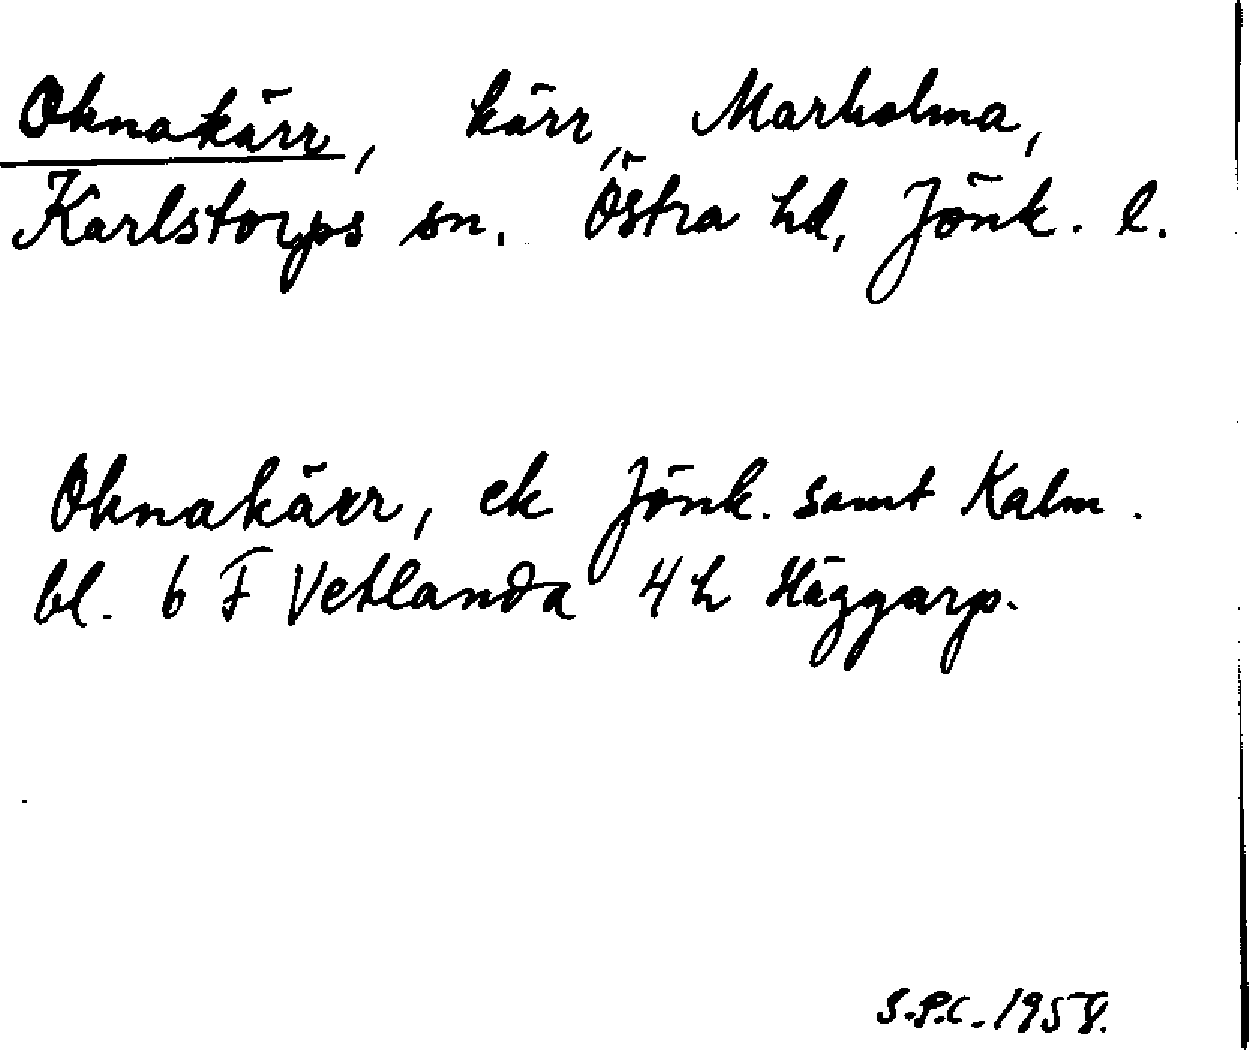 Oknakärr, kärr, Marholma,
Karlstorps sn. Östra hd, Jönk. l.
Oknakärr, ek Jönk. samt Kalm.
bl. 6 F Vetlanda 4 h Häggarp.
S.P.C. 1958.